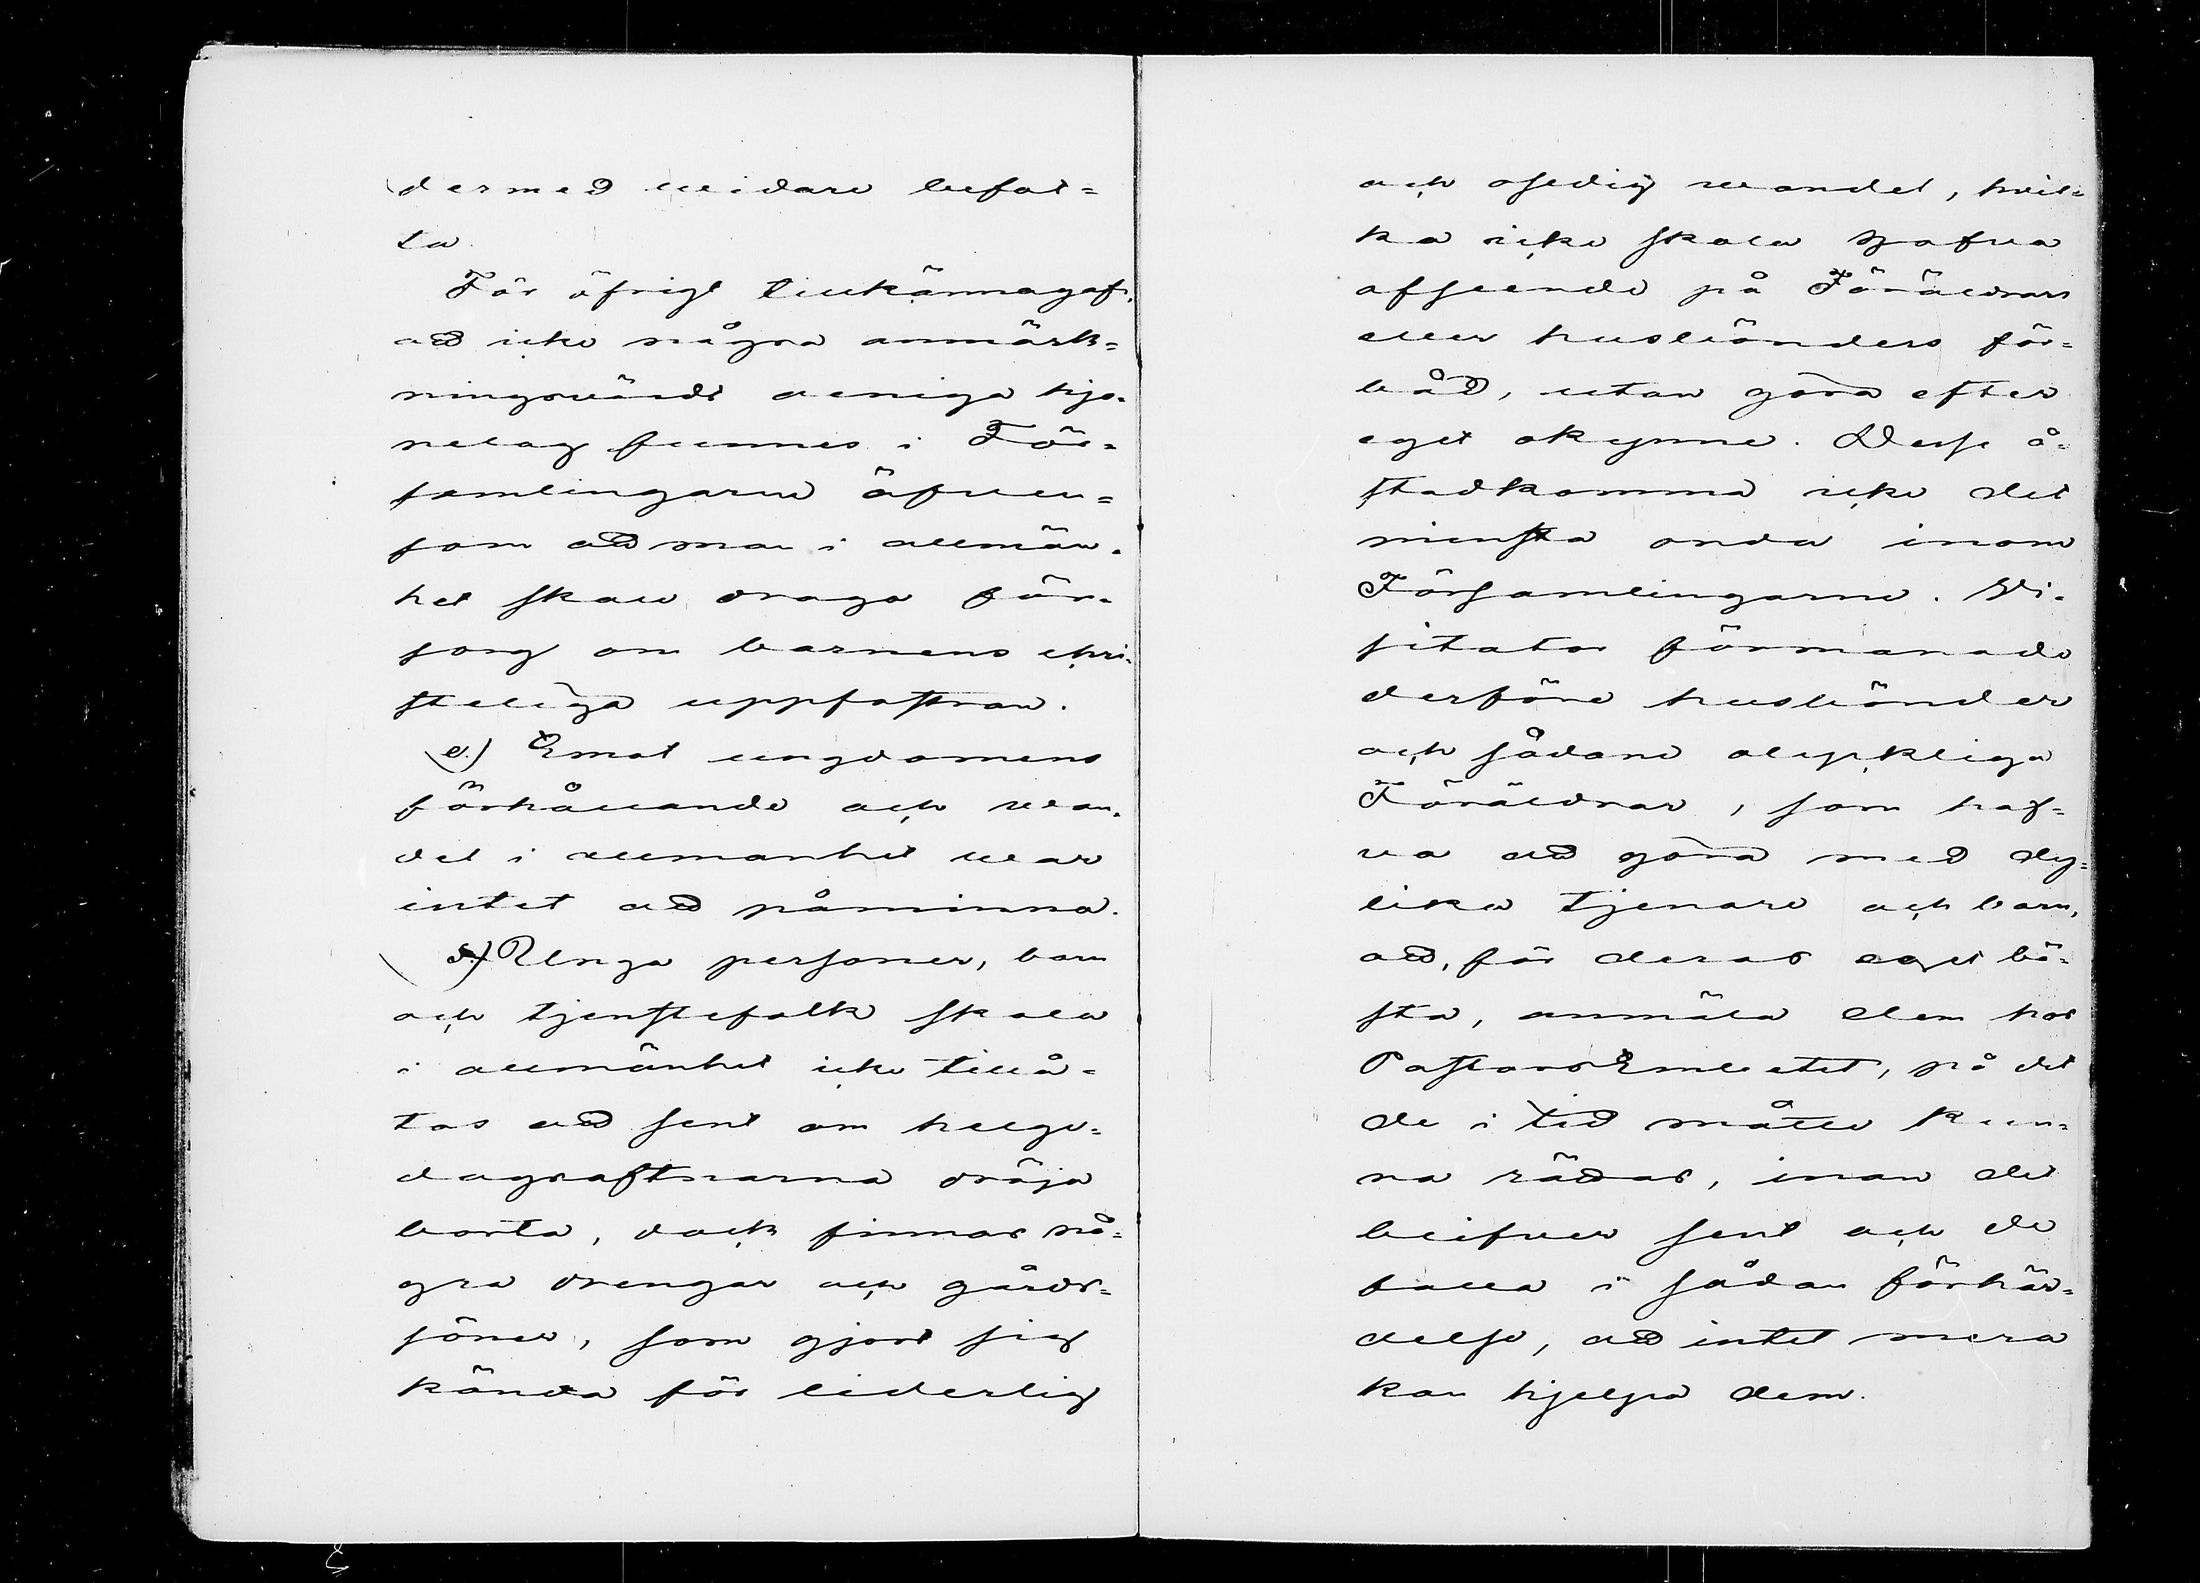 dermed widare befat=
ta.
För öfrigt tillkännagafs,
att icke några anmärk=
ningswärdt oeniga hjo=
nelag funnes i För=
samlingarne äfwen=
som att man i allmän=
het skall draga för=
sorg om barnens chri=
steliga uppfostran.
e.) Emot ungdomens
förhållande och wan=
del i allmänhet war
intet att påminna.
f.) Unga personer, barn
och tjenstefolk skola
i allmänhet icke tillå=
tas att sent om helge=
dagsaftnarna dröja
borta, dock finnas nå=
gra drengar och gårds=
söner, som gjort sig
kända för liderlig
och osedig wandel, hvil=
ka icke skola hafva
afseende på Föräldrars
eller husbönders för=
båd, utan göra efter
eget okynne. Desse å=
stadkomma icke det
minsta onda inom
Församlingarne. Vi=
sitator förmanade
derföre husbönder
och sådane olyckliga
Föräldrar, som haf=
va att göra med dy=
lika tjenare och barn,
att, för deras eget bä=
sta, anmäla dem hos
PastorsEmbetet, på det
de i tid måtte kun=
na rättas, innan det
blifver sent och de
falla i sådan förhär=
delse, att intet mera
kan hjelpa dem.